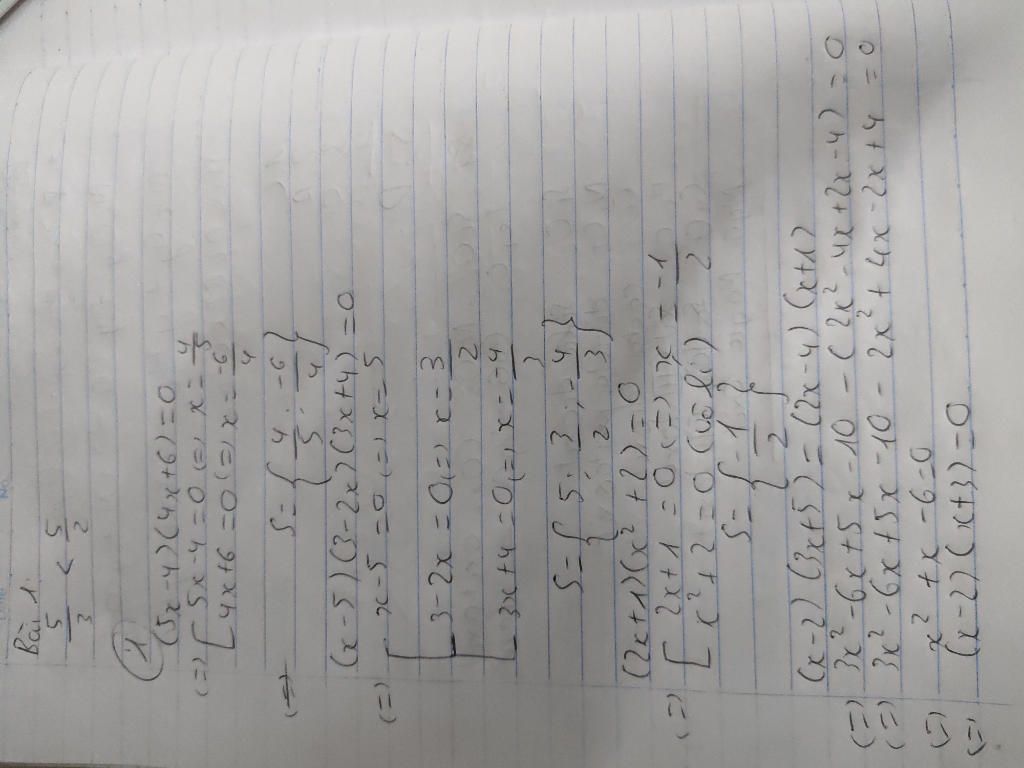 Bài 1.
5/3 < 5/2
1) (5x-4)(4x+6)=0
(=) [ 5x-4=0 (=) x=4/5
[ 4x+6=0 (=) x=-6/4
(=) S={4/5; -6/4}
(x-5)(3-2x)(3x+4)=0
(=) [ x-5=0 (=) x=5
[ 3-2x=0 (=) x=3/2
[ 3x+4=0 (=) x=-4/3
S={5; 3/2; -4/3}
(2x+1)(x²+2)=0
(=) [ 2x+1=0 (=) x=-1/2
[ x²+2=0 (vô lí)
S={-1/2}
(x-2)(3x+5)=(2x-4)(x+1)
(=) 3x²-6x+5x-10-(2x²-4x+2x-4)=0
(=) 3x²-6x+5x-10-2x²+4x-2x+4=0
(=) x²+x-6=0
(=) (x-2)(x+3)=0